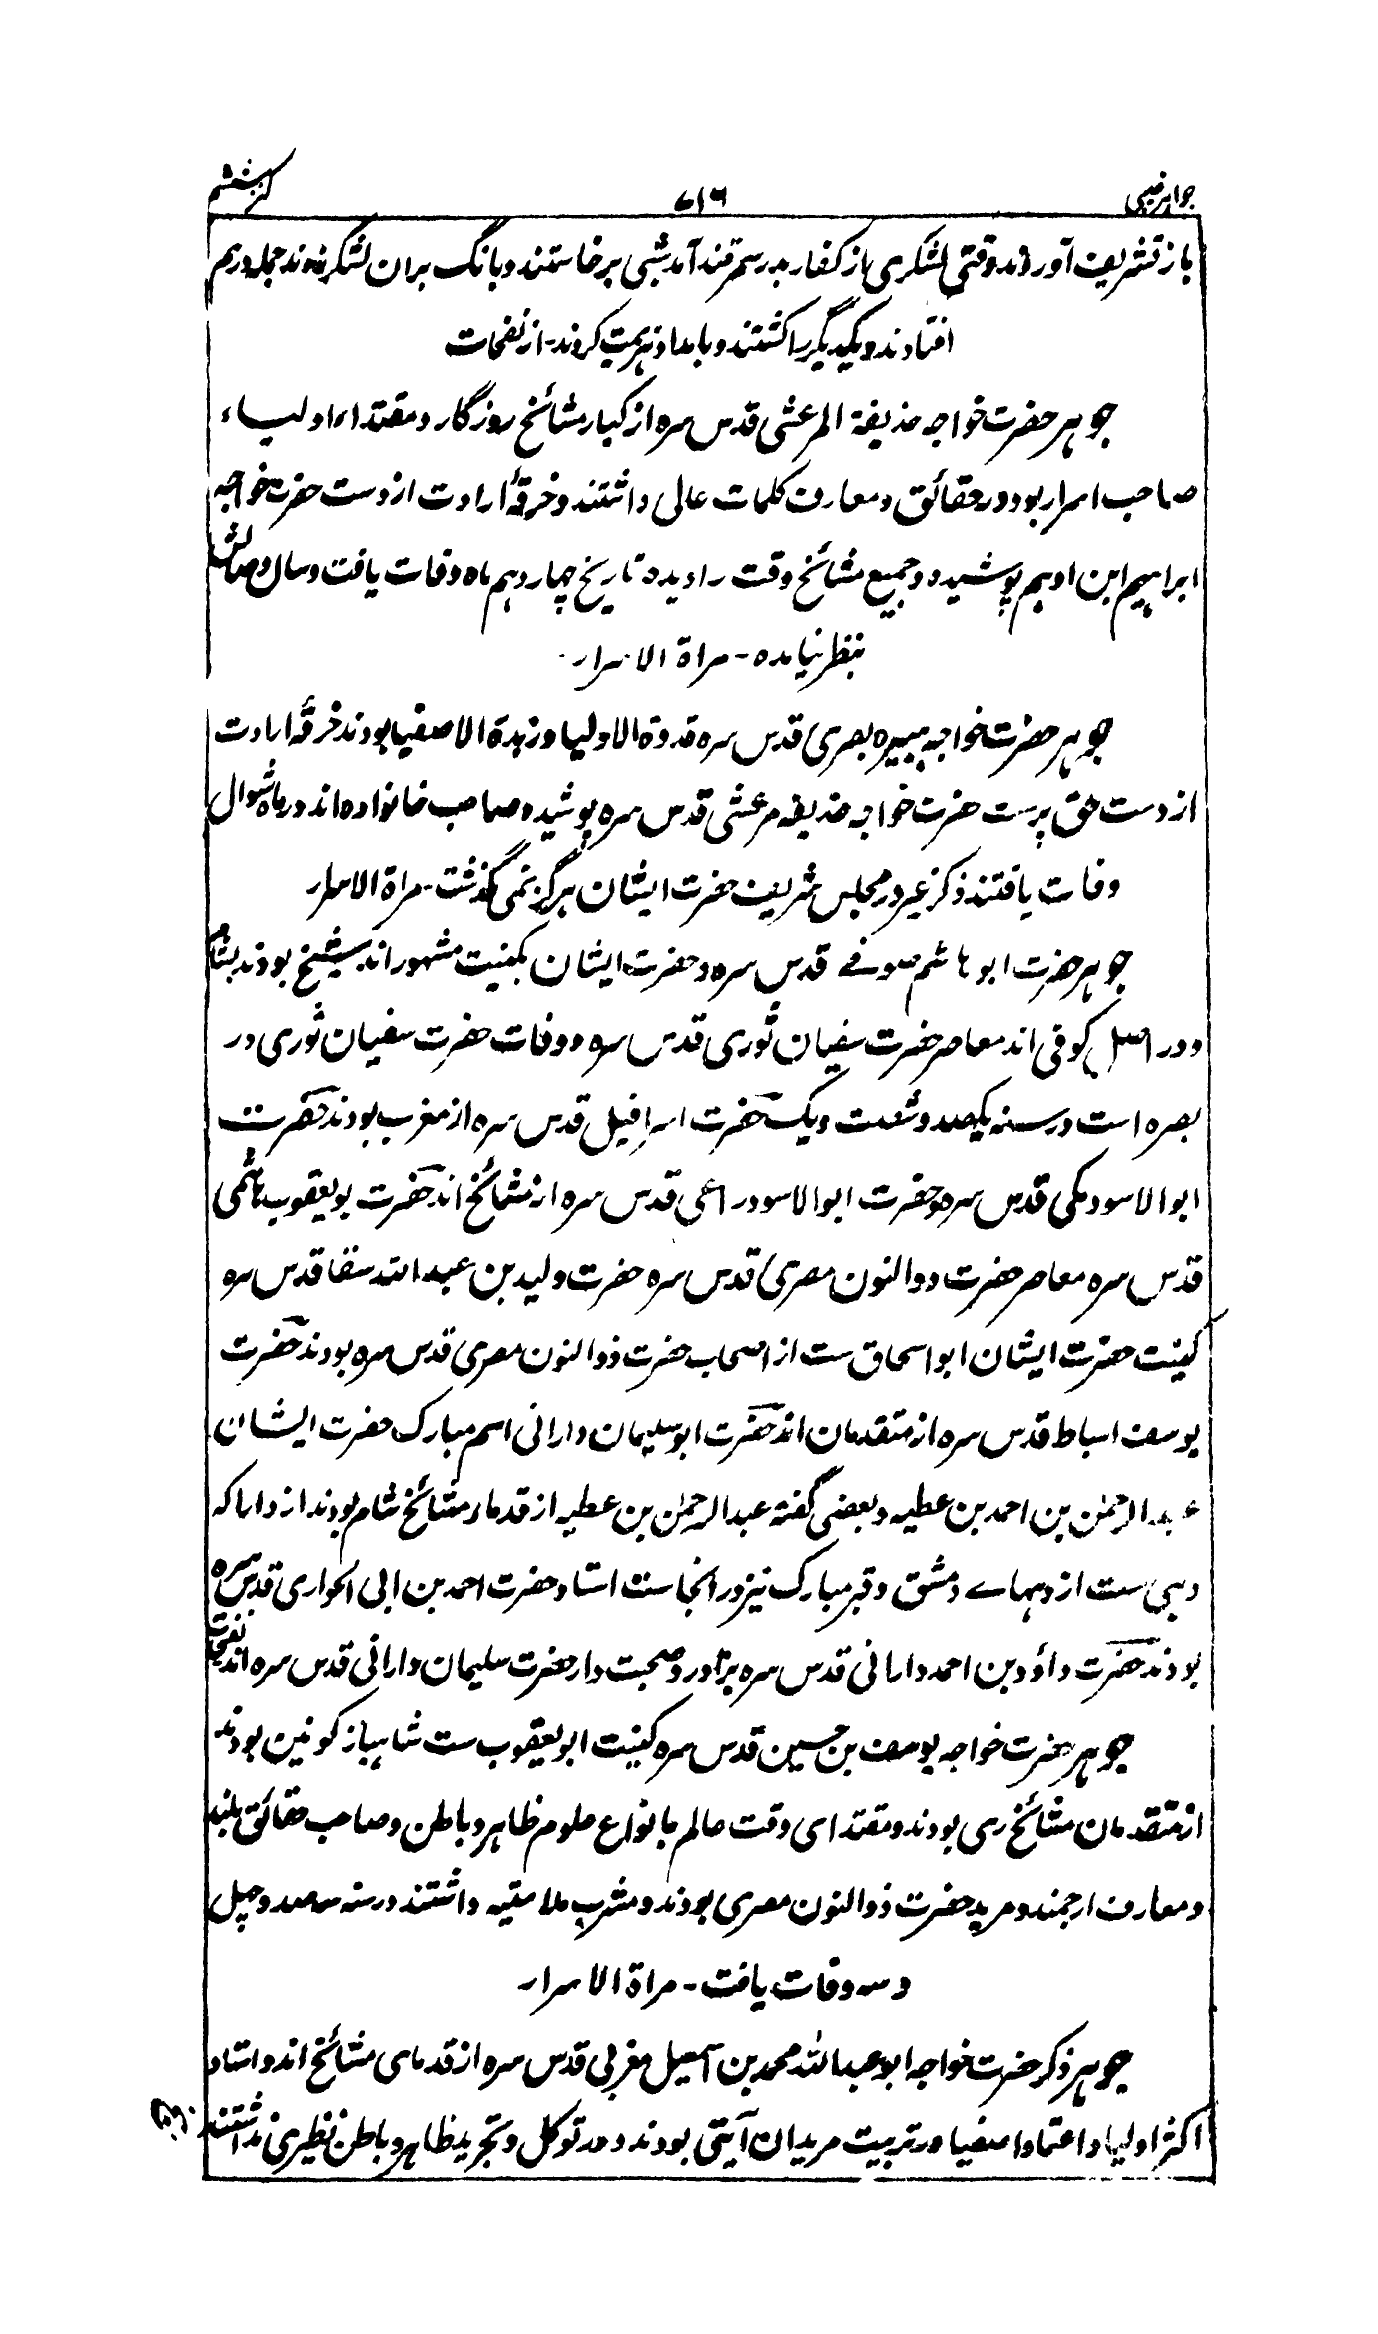 جواهر غیبی
۷۱۶
کنز ششم
باز تشریف آوردند وقتی لشکری از کفار بدر سمرقند آمد شبی برخاستند و بانگ بران لشکر زدند جمله درهم
افتادند و یکدیگر را کشتند و بامداد هزیمت کردند - از نفحات
جوهر حضرت خواجه حذیفة المرعشی قدس سره از کبار مشائخ روزگار و مقتداء اولیاء
صاحب اسرار بود و در حقائق و معارف کلمات عالی داشتند و خرقهٔ ارادت از دست حضرت خواجه
ابراهیم ابن ادهم پوشیده و جمیع مشائخ وقت را دیده تاریخ چهاردهم ماه وفات یافت و سال وصالش
بنظر نیامده - مراة الاسرار
جوهر حضرت خواجه هبیره بصری قدس سره قدوة الاولیا و زبدة الاصفیا بودند خرقهٔ ارادت
از دست حق پرست حضرت خواجه حذیفه مرعشی قدس سره پوشید و صاحب خانواده اند در ماه شوال
وفات یافتند ذکر غیر در مجلس شریف حضرت ایشان هرگز نمی گذشت - مراة الاسرار
جوهر حضرت ابو هاشم صوفے قدس سره و حضرت ایشان بکنیت مشهور اند شیخ بودند بشام
و در اصل کوفی اند معاصر حضرت سفیان ثوری قدس سره و وفات حضرت سفیان ثوری در
بصره است در سنه یکصد و شصت و یک حضرت اسرافیل قدس سره از مغرب بودند حضرت
ابو الاسود مکی قدس سره و حضرت ابو الاسود راعی قدس سره از مشائخ اند حضرت بو یعقوب هاشمی
قدس سره معاصر حضرت ذوالنون مصری قدس سره حضرت ولید بن عبد الله سقا قدس سره
کنیت حضرت ایشان ابو اسحاق ست از اصحاب حضرت ذوالنون مصری قدس سره بودند حضرت
یوسف اسباط قدس سره از متقدمان اند حضرت ابو سلیمان دارانی اسم مبارک حضرت ایشان
عبد الرحمٰن بن احمد بن عطیه و بعضی گفته عبد الرحمٰن بن عطیه از قدماء مشائخ شام بودند از دارا که
دهی ست از دهہاے دمشق و قبر مبارک نیز در انجاست استاد حضرت احمد بن ابی الحواری قدس سره
بودند حضرت داؤد بن احمد دارانی قدس سره برادر و صحبت دار حضرت سلیمان دارانی قدس سره اند نفحات
جوهر حضرت خواجه یوسف بن حسین قدس سره کنیت ابو یعقوب ست شاهباز کونین بودند
از متقدمان مشائخ ری بودند و مقتدای وقت عالم بانواع علوم ظاهر و باطن و صاحب حقائق بلند
و معارف ارجمند و مرید حضرت ذوالنون مصری بودند و مشرب ملامتیه داشتند در سنه سه صد و چهل
و سه وفات یافت - مراة الاسرار
جوهر ذکر حضرت خواجه ابو عبد الله محمد بن اسمعیل مغربی قدس سره از قدمای مشائخ اند و استاد
اکثر اولیا و اعتماد اصفیا و در تربیت مریدان آیتی بودند و در توکل و تجرید ظاهر و باطن نظیری نداشتند